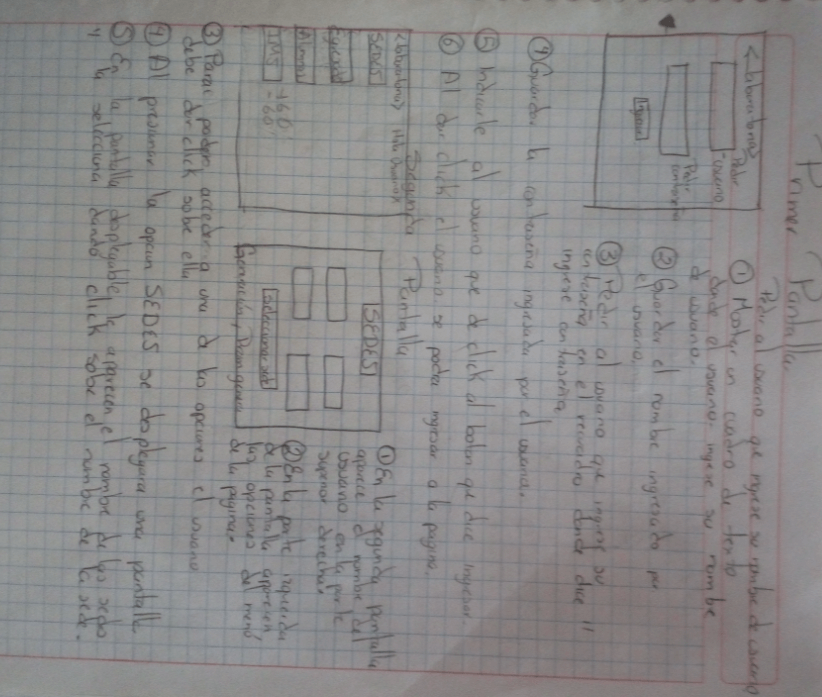 Primer Pantalla
Pedir al usuario que ingrese su nombre de usuario
① Mostrar un cuadro de texto
donde el usuario ingrese su nombre
de usuario.
② Guardar el nombre ingresado por
el usuario.
③ Pedir al usuario que ingrese su
contraseña en el recuadro donde dice "
ingrese contraseña
<laboratorio>
Pedir
usuario
Pedir
contraseña
Ingresar
④ Guardar la contraseña ingresada por el usuario.
⑤ Indicarle al usuario que de click al boton que dice ingresar
⑥ Al dar click el usuario se podra ingresar a la pagina.
Segunda Pantalla
<laboratorio> Hola Usuario X
SEDES
Alumnos
+60
-60
SEDES
Seleccionar sede
① En la segunda pantalla
aparece el nombre del
usuario en la parte
superior derecha.
② En la parte izquierda
de la pantalla aparecen
las opciones del menú
de la pagina.
③ Para poder acceder a una de las opciones el usuario
debe dar click sobre ella
④ Al presionar la opcion SEDES se desplegara una pantalla
⑤ En la pantalla desplegable le aparecen el nombre de las sedes
y la selecciona dando click sobre el nombre de la sede.